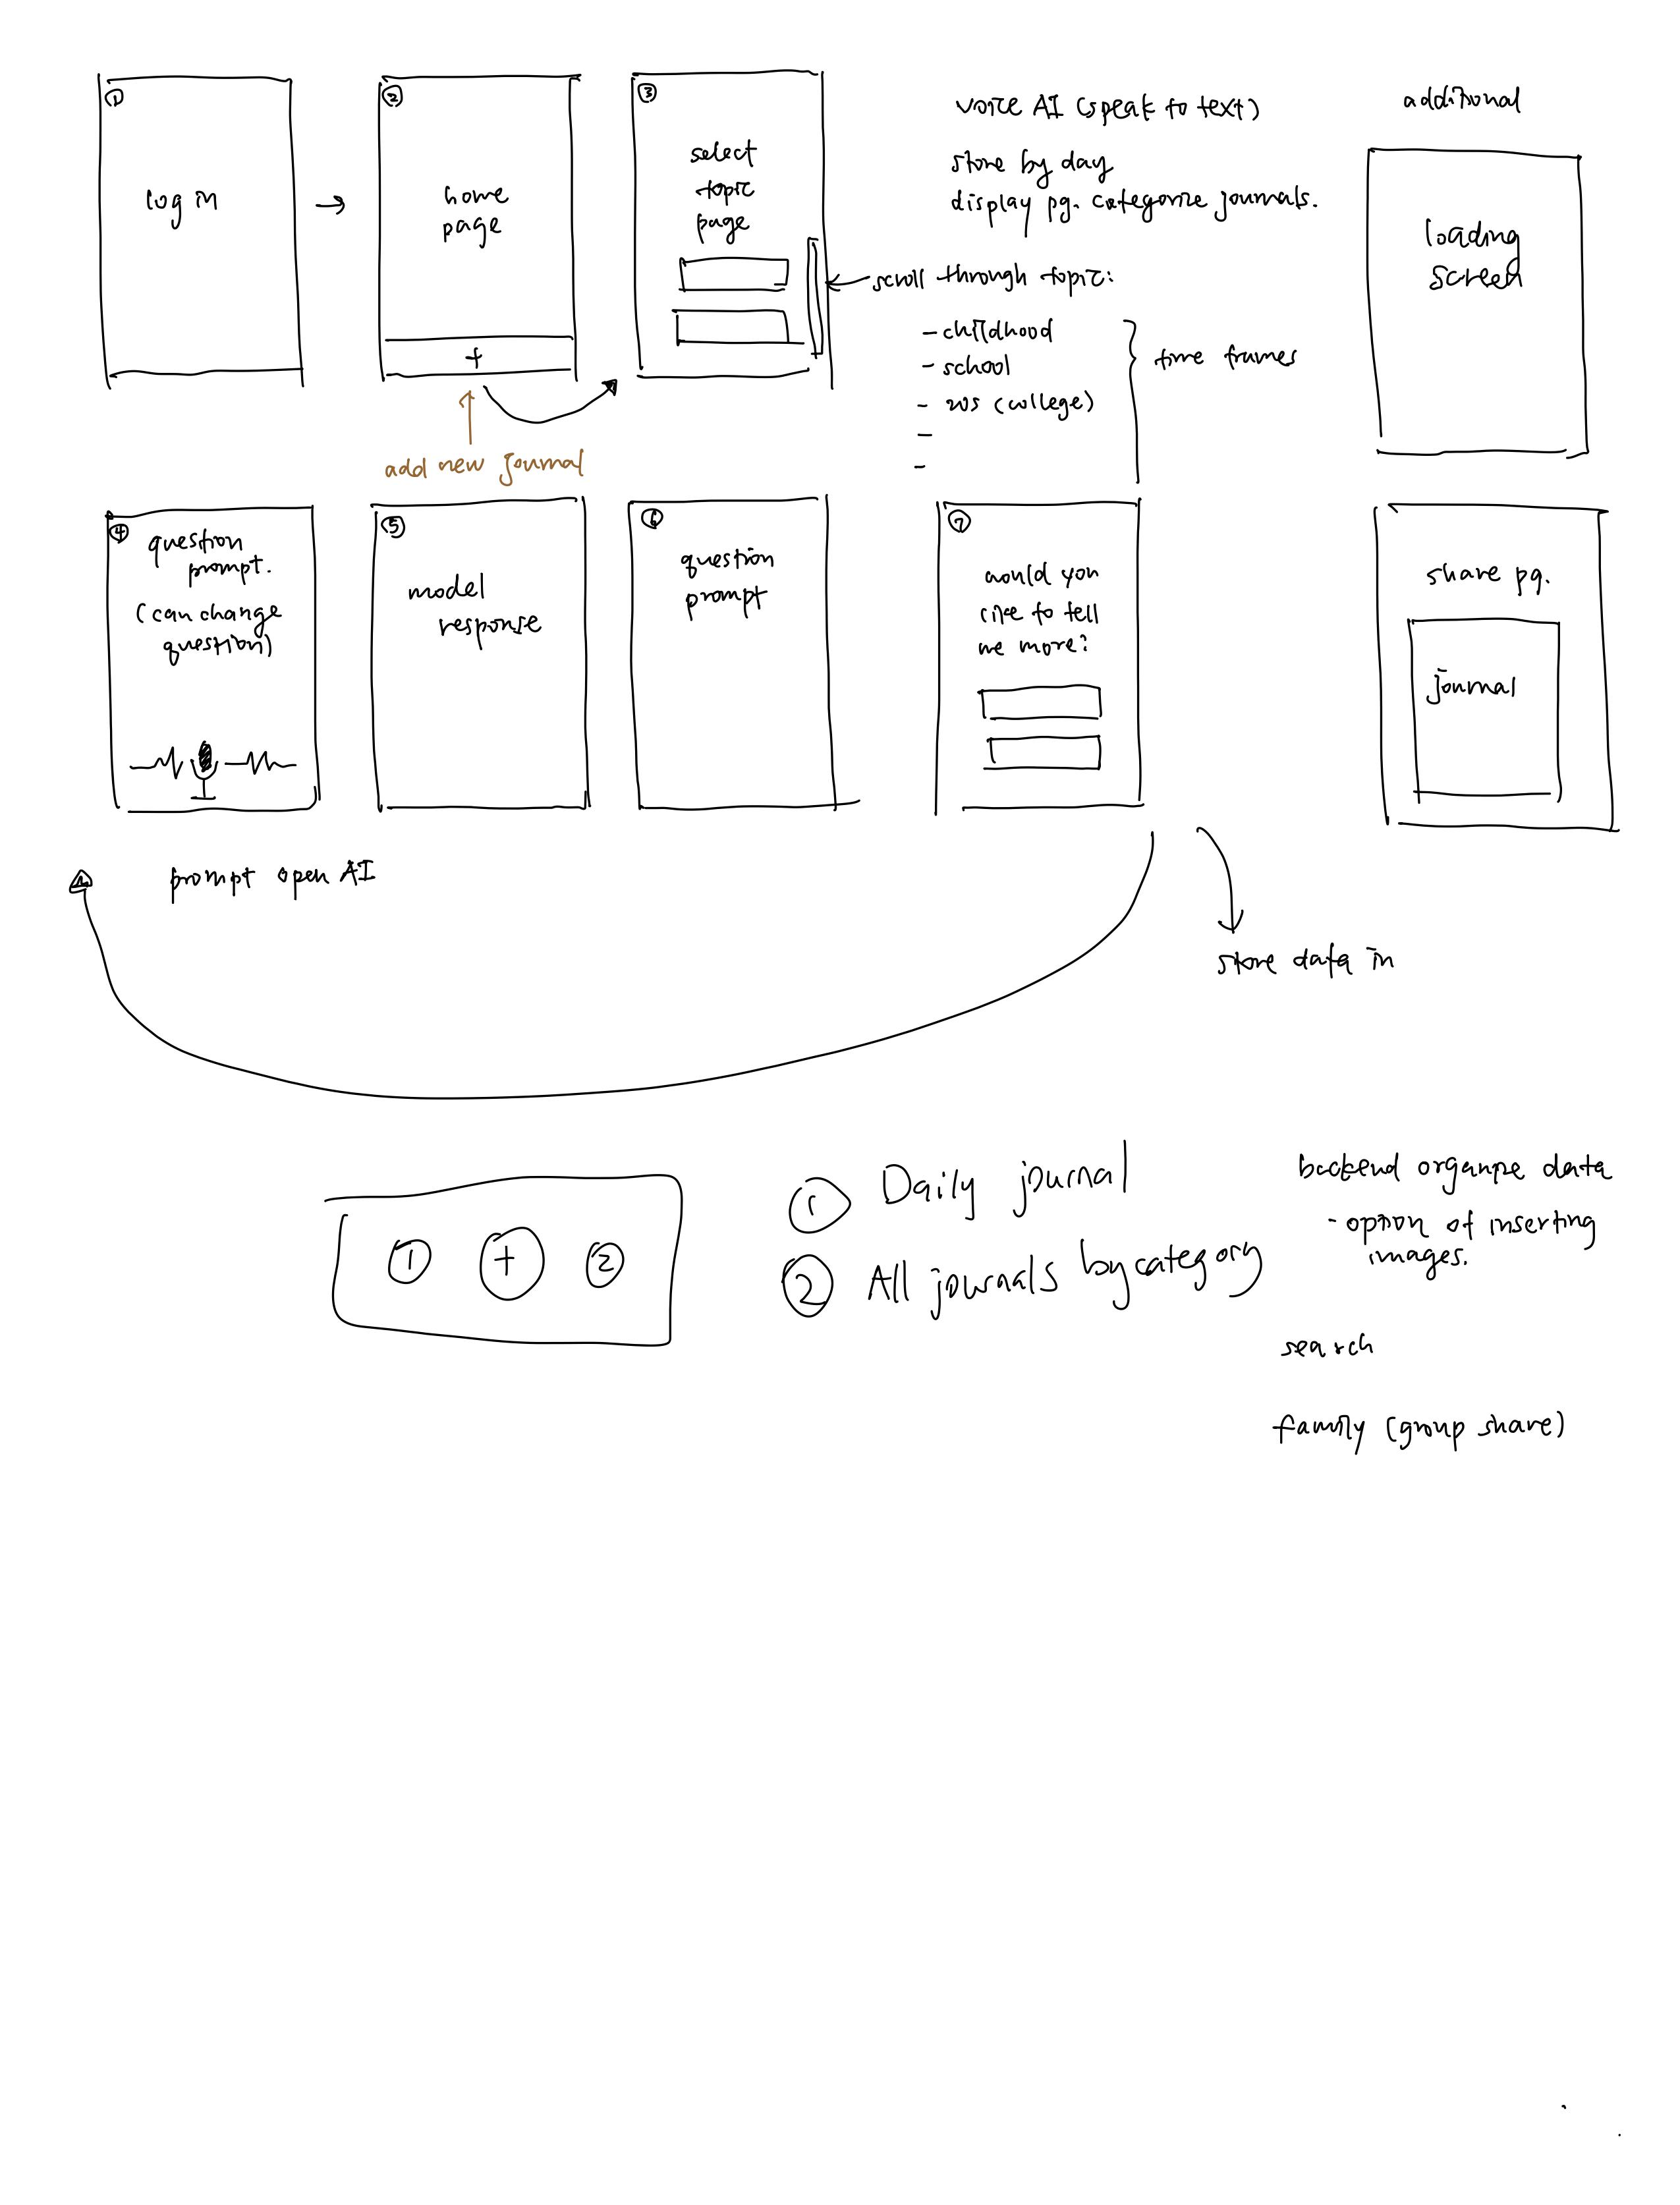 ①
log in
→
②
home
page
+
add new journal
③
select
topic
page
voice AI (speak to text)
store by day
display pg. categorize journals.
scroll through topic:
- childhood
- school
- 20s (college)
-
-
time frames
additional
loading
screen
④
question
prompt.
(can change
question)
⑤
model
response
⑥
question
prompt
⑦
would you
like to tell
me more?
share pg.
journal
prompt open AI
store data in
① + ②
① Daily journal
② All journals by category
backend organize data
- option of inserting
images.
search
family (group share)